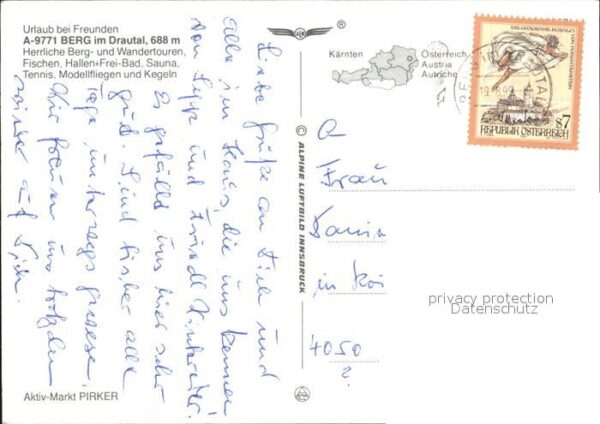 Urlaub bei Freunden
A-9771 BERG im Drautal, 688 m
Herrliche Berg- und Wandertouren,
Fischen, Hallen+Frei-Bad, Sauna,
Tennis, Modellfliegen und Kegeln
®
Kärnten
Österreich
Austria
Autriche
REPUBLIK ÖSTERREICH
S7
© ALPINE LUFTBILD INNSBRUCK
Liebe Grüße an Dich und
alle im Haus, die uns kennen
von Sepp und Friedl
Es gefällt uns hier sehr
gut. Sind bisher alle
Tage unterwegs gewesen.
Wir freuen uns trotzdem
wieder auf
Frau
in
4050
privacy protection
Datenschutz
Aktiv-Markt PIRKER